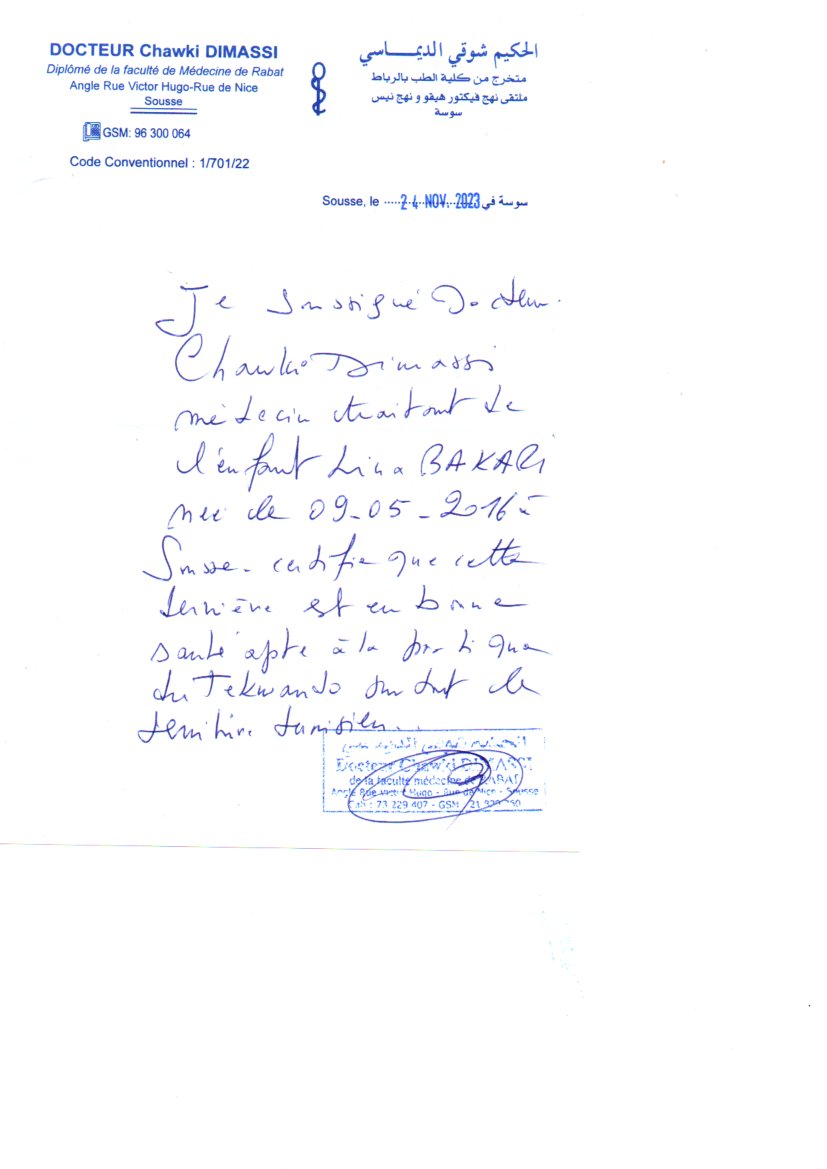 DOCTEUR Chawki DIMASSI
Diplômé de la faculté de Médecine de Rabat
Angle Rue Victor Hugo-Rue de Nice
Sousse
GSM: 96 300 064
Code Conventionnel : 1/701/22
الحكيم شوقي الديمـــــاسي
متخرج من كلية الطب بالرباط
ملتقى نهج فيكتور هيقو و نهج نيس
سوسة
Sousse, le ..... 24 NOV. 2023 سوسة في
Je soussigné Docteur
Chawki Dimassi
médecin traitant de
l'enfant Lina BAKARI
née le 09-05-2016 à
Sousse. certifie que cette
dernière est en bonne
santé apte à la pratique
du Tekwando sur tout le
territoire tunisien..
Docteur Chawki DIMASSI
de la faculté médecine de RABAT
Angle Rue Victor Hugo - Rue de Nice - Sousse
: 73 229 407 - GSM : 21